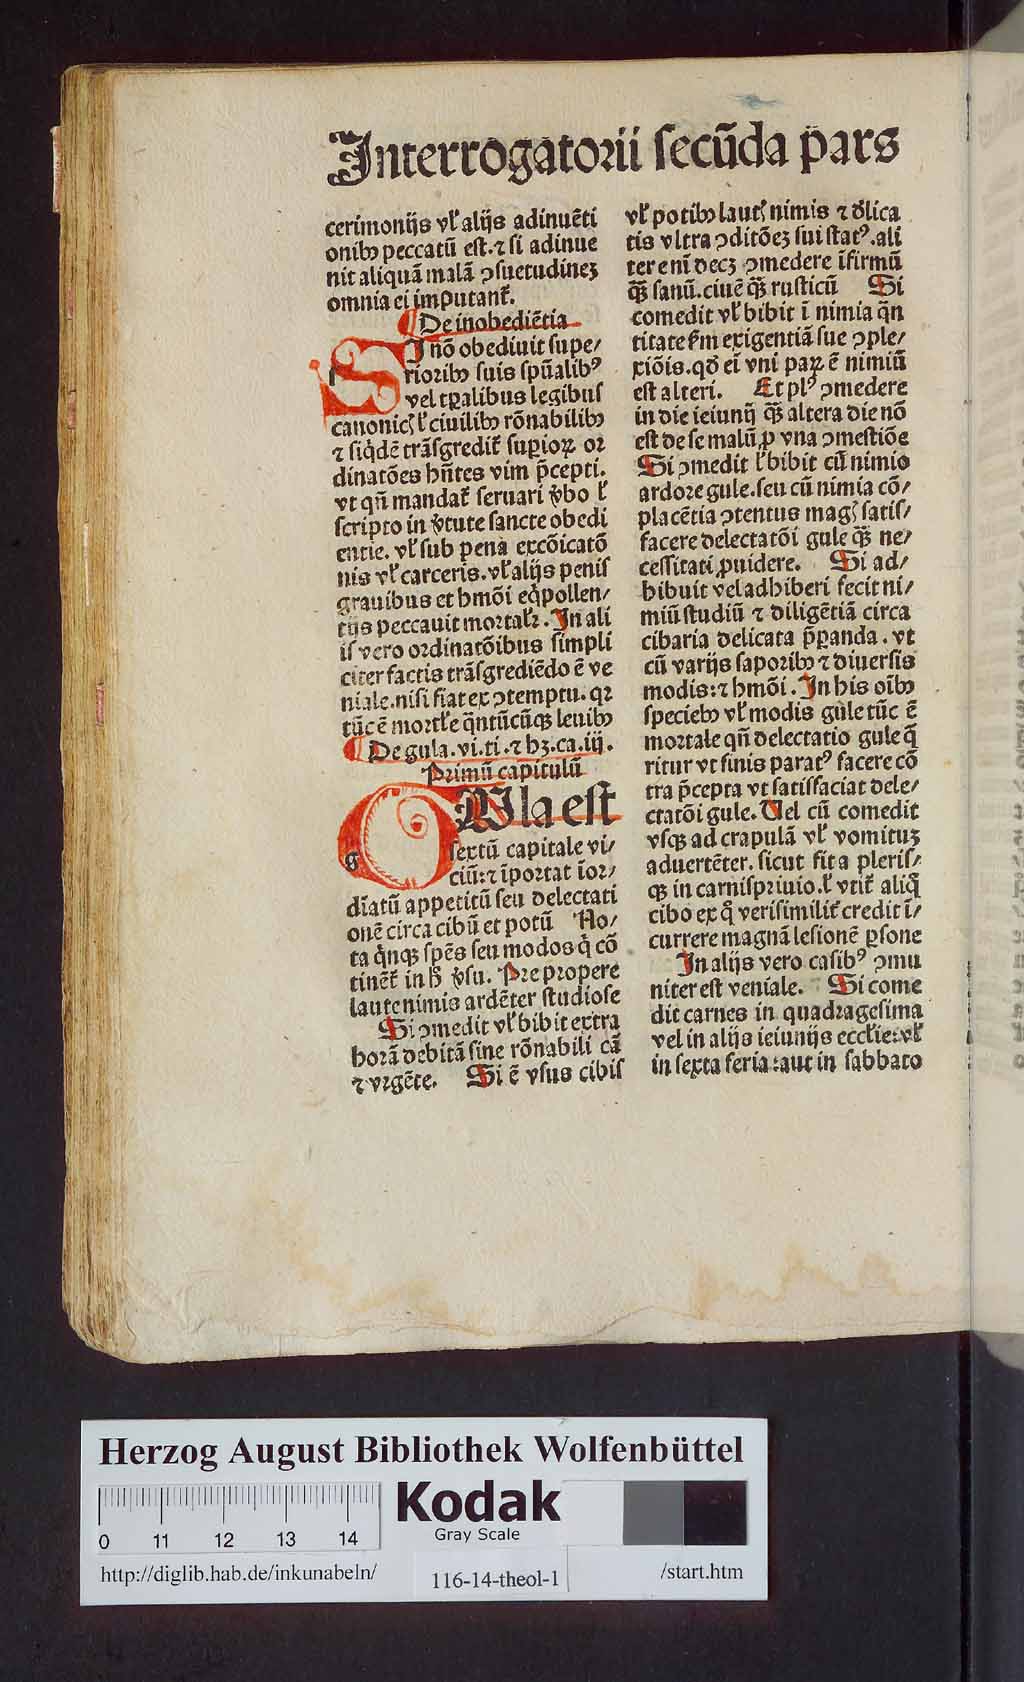 Interrogatorii secūda pars
cerimonijs vł alijs adinuēti
onibꝰ peccatū est. ⁊ si adinue
nit aliquā malā ↄsuetudineꝫ
omnia ei imputant᷑.
¶ De inobediētia
SI nō obediuit supe/
rioribꝰ suis spūalibꝰ
vel tꝑalibus legibus
canonicꝭ ł ciuilibꝰ rōnabilibꝰ
⁊ siq̇dē trāsgredit᷑ suꝑioꝝ or
dinatōes hn̄tes vim p̄cepti.
vt qn̄ mandat᷑ seruari v̓bo ł
scripto in v̓tute sancte obedi
entie. vł sub pena excōicatō
nis vł carceris. vł alijs penis
grauibus et hmōi eq̇pollen/
tijs peccauit mortalr̄. In ali
is vero ordinatōibus simpli
citer factis trāsgrediēdo ē ve
niale. nisi fiat ex ↄtemptu. qꝛ
tūc ē mortłe q̄ntūcūqꝫ leuibꝰ
¶ De gula. vi. ti. ⁊ hꝫ. ca. iij.
Primū capitulū
GUla est
sextū capitale vi/
ciū: ⁊ īportat īor/
dīatū appetitū seu delectati
onē circa cibū et potū No/
ta q̇nqꝫ spēs seu modos q̇ cō
tinēt᷑ in h̄ v̓su. Pre propere
laute nimis ardēter studiose
Si ↄmedit vł bibit extra
horā debitā sine rōnabili cā
⁊ vrgēte. Si ē vsus cibis
vł potibꝰ lautꝭ nimis ⁊ d̓lica
tis vltra ↄditōeꝫ sui statꝰ. ali
ter enī decꝫ ↄmedere īfirmū
q̄ꝫ sanū. ciuē q̄ꝫ rusticū Si
comedit vł bibit ī nimia q̄n
titate ẜm exigentiā sue ↄple/
xiōis. qd̓ eī vni paꝝ ē nimiū
est alteri. Et plꝰ ↄmedere
in die ieiunij q̄ꝫ altera die nō
est de se malū ꝓ vna ↄmestiōe
Si ↄmedit ł bibit cū nimio
ardore gule. seu cū nimia cō/
placētia ↄtentus magꝭ satis/
facere delectatōi gule q̄ꝫ ne/
cessitati ꝓuidere. Si ad/
hibuit vel adhiberi fecit ni/
miū studiū ⁊ diligētiā circa
cibaria delicata p̄ꝑanda. vt
cū varijs saporibꝰ ⁊ diuersis
modis: ⁊ hmōi. In his oībꝰ
speciebꝰ vł modis gule tūc ē
mortale qn̄ delectatio gule q̄
ritur vt finis paratꝰ facere cō
tra p̄cepta vt satisfaciat dele/
ctatōi gule. Uel cū comedit
vsqꝫ ad crapulā vł vomituꝫ
aduertēter. sicut fit a pleris/
qꝫ in carnispriuio. ł vtit᷑ aliq̊
cibo ex q̊ verisimilit᷑ credit ī/
currere magnā lesionē ꝑsone
In alijs vero casibꝰ ↄmu
niter est veniale. Si come
dit carnes in quadragesima
vel in alijs ieiunijs eccłie: vł
in sexta feria: aut in sabbato
Herzog August Bibliothek Wolfenbüttel
Kodak
Gray Scale
0 11 12 13 14
http://diglib.hab.de/inkunabeln/
116-14-theol-1
/start.htm